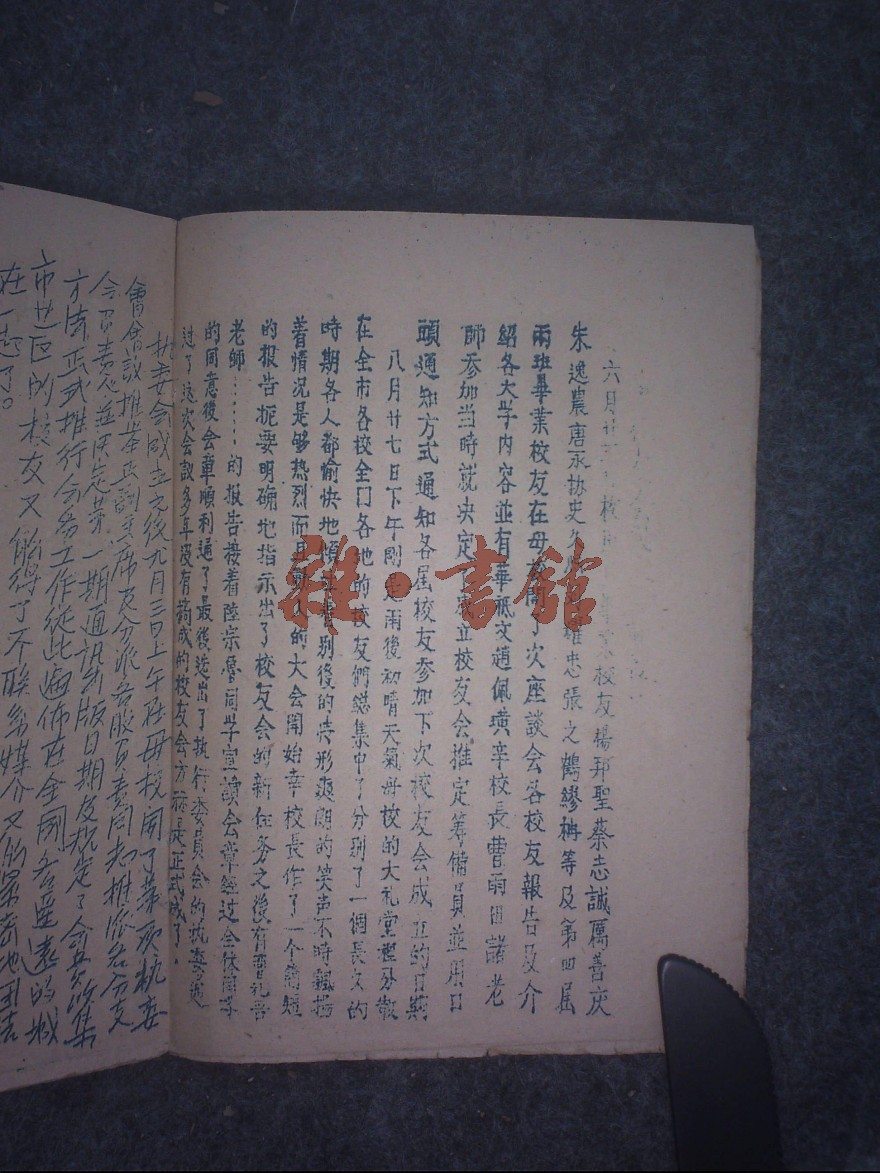 六月 校 校友楊邦聖蔡志誠厲善庆
朱逸農唐永协史 忠張之鶴繆梅等及第四届
兩班畢業校友在母校開了次座談会各校友報告及介
紹各大学内容並有華砥文趙佩璜辛校長曹雨田諸老
師参加当時就决定了成立校友会推定筹備員並用口
頭通知方式通知各届校友参加下次校友会成立的日期
八月廿七日下午剛是雨後初晴天氣母校的大礼堂裡分散
在全市各校全门各地的校友們総集中了分别了一個長久的
時期各人都愉快地傾 着别後的情形爽朗的笑声不時飄揚
着情况是够热烈而且動人的大会開始辛校長作了一个簡短
的报告扼要明确地指示出了校友会的新任务之後有曹礼吾
老師……的报告接着陸宗魯同学宣讀会章经过全体同学
的同意後会章順利通了最後选出了执行委員会的执委通
过了这次会議多年没有搞成的校友会方 是正式成了。
执委会成立之後九月三日上午在母校開了第一次执委
會會議推举正副主席及分派各股負責同志推派各分支
会負責人並决定第一期通訊出版日期及规定了会費收集
方法正式推行会务工作從此遍佈在全國各遥遠的城
市地区的校友又能得了不 联系媒介又的緊密地团结
在一起了。
雜·書館